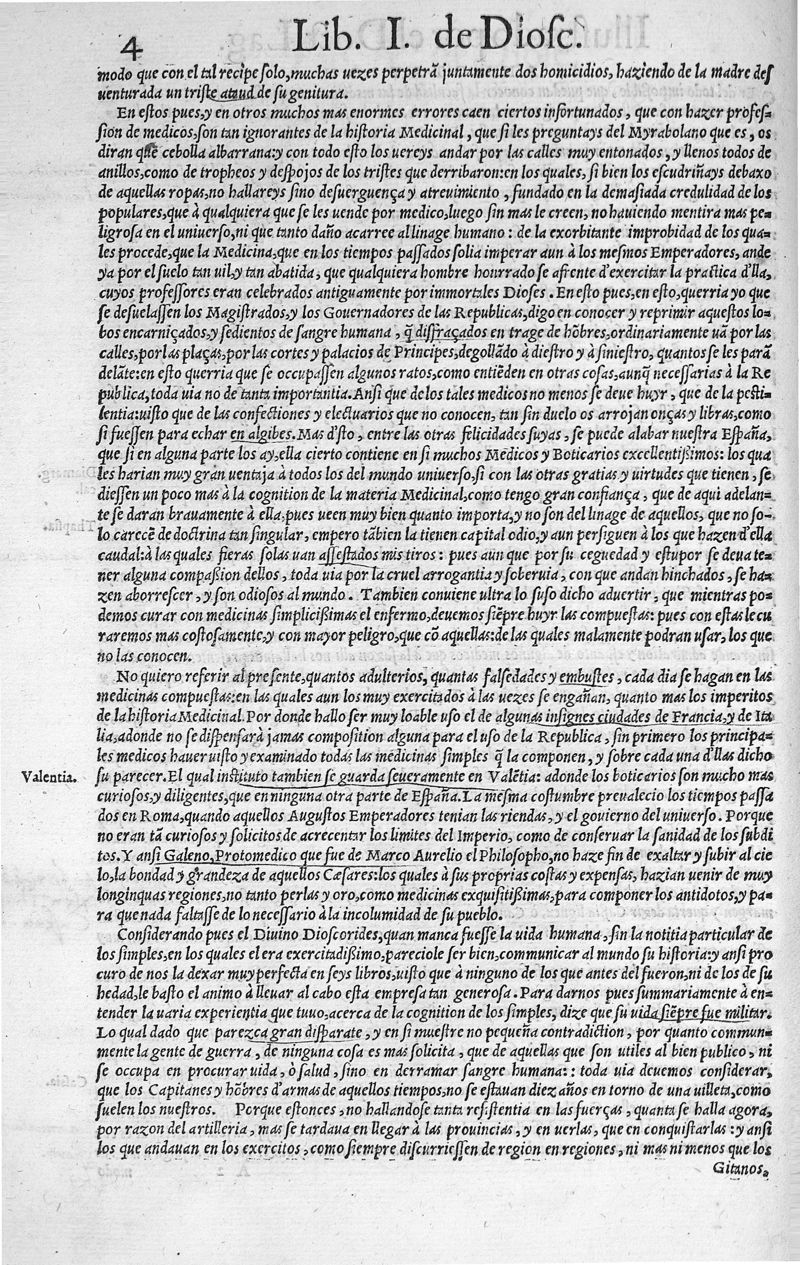 4 Lib. I. de Diosc.
modo que con el tal recipe solo, muchas uezes perpetrã juntamente dos homicidios, haziendo de la madre des
uenturada un triste ataud de su genitura.
En estos pues, y en otros muchos mas enormes errores caen ciertos infortunados, que con hazer profes-
sión de medicos, son tan ignorantes de la historia Medicinal, que si les preguntays del Myrabolano que es, os
diran que cebolla albarrana: y con todo esto los uereys andar por las calles muy entonados, y llenos todos de
anillos, como de tropheos y despojos de los tristes que derribaron: en los quales, si bien los escudriñays debaxo
de aquellas ropas, no hallareys sino desuerguença y atreuimiento, fundado en la demasiada credulidad de los
populares, que à qualquiera que se les uende por medico, luego sin mas le creen, no hauiendo mentira mas pe-
ligrosa en el uniuerso, ni que tanto daño acarree al linage humano: de la exorbitante improbidad de los qua-
les procede, que la Medicina, que en los tiempos passados solia imperar aun à los mesmos Emperadores, ande
ya por el suelo tan uil, y tan abatida, que qualquiera hombre honrrado se afrente d'exercitar la practica d'lla,
cuyos professores eran celebrados antiguamente por immortales Dioses. En esto pues, en esto, querria yo que
se desuelassen los Magistrados, y los Gouernadores de las Republicas, digo en conocer y reprimir aquestos lo-
bos encarniçados, y sedientos de sangre humana, q̃ disfraçados en trage de hõbres, ordinariamente uã por las
calles, por las plaças, por las cortes y palacios de Principes, degollãdo à diestro y à siniestro, quantos se les parã
delãte: en esto querria que se occupassen algunos ratos, como entiẽden en otras cosas, aunq̃ necessarias à la Re
publica, toda uia no de tanta importantia. Ansi que de los tales medicos no menos se deue huyr, que de la pesti-
lentia: uisto que de las confectiones y electuarios que no conocen, tan sin duelo os arrojan onças y libras, como
si fuessen para echar en algibes. Mas d'sto, entre las otras felicidades suyas, se puede alabar nuestra España,
que si en alguna parte los ay, ella cierto contiene en si muchos Médicos y Boticarios excellentissimos: los qua
les harian muy gran uentaja à todos los del mundo uniuerso, si con las otras gratias y uirtudes que tienen, se
diessen un poco mas à la cognition de la materia Medicinal, como tengo gran confiança, que de aqui adelan-
te se daran brauamente à ella, pues ueen muy bien quanto importa, y no son del linage de aquellos, que no so-
lo carecẽ de doctrina tan singular, empero tãbien la tienen capital odio, y aun persiguen à los que hazen d'ella
caudal: à las quales fieras solas uan assestados mis tiros: pues aun que por su ceguedad y estupor se deua te-
ner alguna compassion dellos, toda uia por la cruel arrogantia y soberuia, con que andan hinchados, se ha-
zen aborrescer, y son odiosos al mundo. Tambien conuiene ultra lo suso dicho aduertir, que mientras po-
demos curar con medicinas simplicissimas el enfermo, deuemos siẽpre huyr las compuestas: pues con estas le cu
raremos mas costosamente, y con mayor peligro, que cõ aquellas: de las quales malamente podran usar, los que
no las conocen.
No quiero referir al presente, quantos adulterios, quantas falsedades y embustes, cada dia se hagan en las
medicinas compuestas: en las quales aun los muy exercitados à las uezes se engañan, quanto mas los imperitos
de la historia Medicinal. Por donde hallo ser muy loable uso el de algunas insignes ciudades de Francia, y de Ita
lia, adonde no se dispensarà jamas composition alguna para el uso de la Republica, sin primero los principa-
les medicos hauer uisto y examinado todas las medicinas simples q̃ la componen, y sobre cada una d'llas dicho
Valentia.
su parecer. El qual instituto tambien se guarda seueramente en Valẽtia: adonde los boticarios son mucho mas
curiosos, y diligentes, que en ninguna otra parte de España. La mesma costumbre preualecio los tiempos passa
dos en Roma, quando aquellos Augustos Emperadores tenian las riendas, y el gouierno del uniuerso. Porque
no eran tã curiosos y solicitos de acrecentar los limites del Imperio, como de conseruar la sanidad de los subdi
tos. Y ansi Galeno, Protomedico que fue de Marco Aurelio el Philosopho, no haze fin de exaltar y subir al cie
lo, la bondad y grandeza de aquellos Cæsares: los quales à sus proprias costas y expensas, hazian uenir de muy
longinquas regiones, no tanto perlas y oro, como medicinas exquisitissimas, para componer los antidotos, y pa-
ra que nada faltasse de lo necessario à la incolumidad de su pueblo.
Considerando pues el Diuino Dioscorides, quan manca fuesse la uida humana, sin la notitia particular de
los simples, en los quales el era exercitadissimo, pareciole ser bien, communicar al mundo su historia: y ansi pro
curo de nos la dexar muy perfecta en seys libros, uisto que à ninguno de los que antes del fueron, ni de los de su
hedad, le basto el animo à lleuar al cabo esta empresa tan generosa. Para darnos pues summariamente à en-
tender la uaria experientia que tuuo, acerca de la cognition de los simples, dize que su uida siẽpre fue militar.
Lo qual dado que parezca gran disparate, y en si muestre no pequeña contradiction, por quanto commun-
mente la gente de guerra, de ninguna cosa es mas solicita, que de aquellas que son utiles al bien publico, ni
se occupa en procurar uida, ò salud, sino en derramar sangre humana:: toda uia deuemos considerar,
que los Capitanes y hõbres d'armas de aquellos tiempos, no se estauan diez años en torno de una uilleta, como
suelen los nuestros. Porque estonces, no hallandose tanta resistentia en las fuerças, quanta se halla agora,
por razon del artilleria, mas se tardaua en llegar à las prouincias, y en uerlas, que en conquistarlas: y ansi
los que andauan en los exercitos, como siempre discurriessen de region en regiones, ni mas ni menos que los
Gitanos,